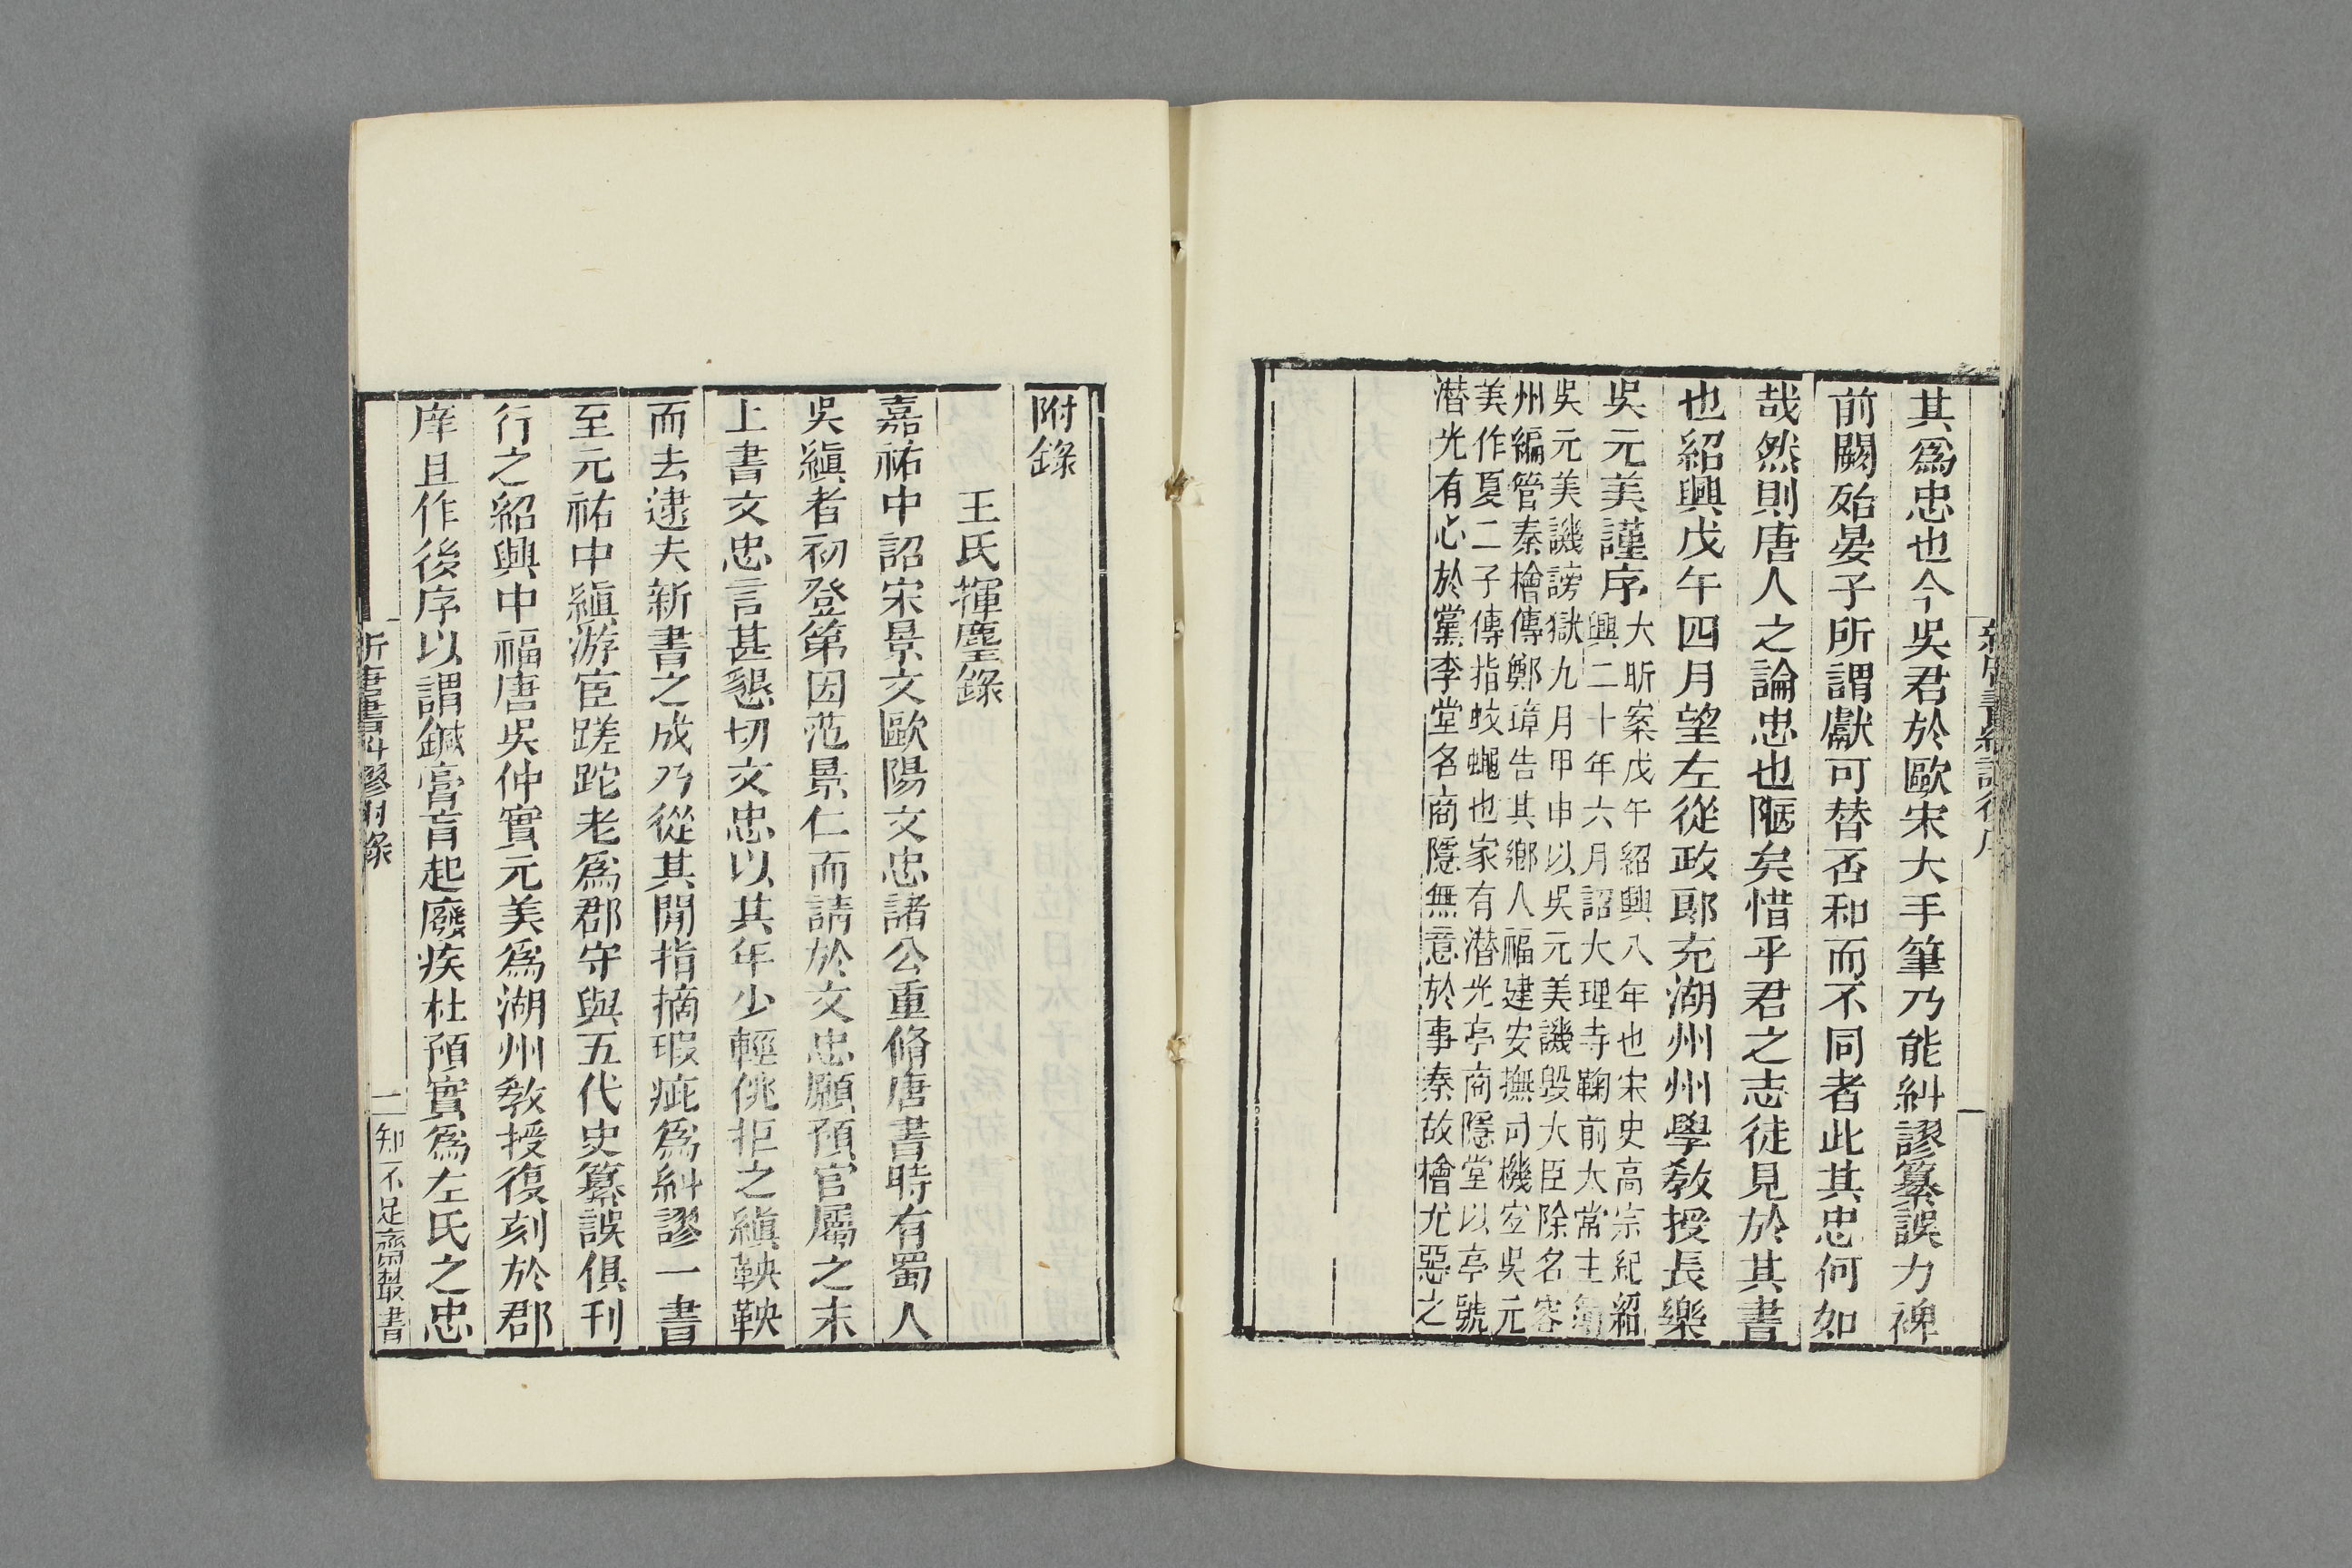 其爲忠也今吳君於歐宋大手筆乃能糾謬纂誤力裨
前闕殆晏子所謂獻可替否和而不同者此其忠何如
哉然則唐人之論忠也陋矣惜乎君之志徒見於其書
也紹興戊午四月望左從政郎充湖州州學敎授長樂
吳元美謹序
大昕案戊午紹興八年也宋史高宗紀紹
興二十年六月詔大理寺鞫前太常主簿
吳元美譏謗獄九月甲申以吳元美譏毀大臣除名容
州編管秦檜傳鄭瑋告其鄉人福建安撫司機宜吳元
美作夏二子傳指蚊蠅也家有潛光亭商隱堂以亭號
潛光有心於黨李堂名商隱無意於事秦故檜尤惡之
附錄
王氏揮麈錄
嘉祐中詔宋景文歐陽文忠諸公重脩唐書時有蜀人
吳縝者初登第因范景仁而請於文忠願預官屬之末
上書文忠言甚懇切文忠以其年少輕佻拒之縝鞅鞅
而去逮夫新書之成乃從其閒指摘瑕疵爲糾謬一書
至元祐中縝游宦蹉跎老爲郡守與五代史纂誤俱刊
行之紹興中福唐吳仲實元美爲湖州敎授復刻於郡
庠且作後序以謂鍼膏肓起廢疾杜預實爲左氏之忠
二
知不足齋叢書